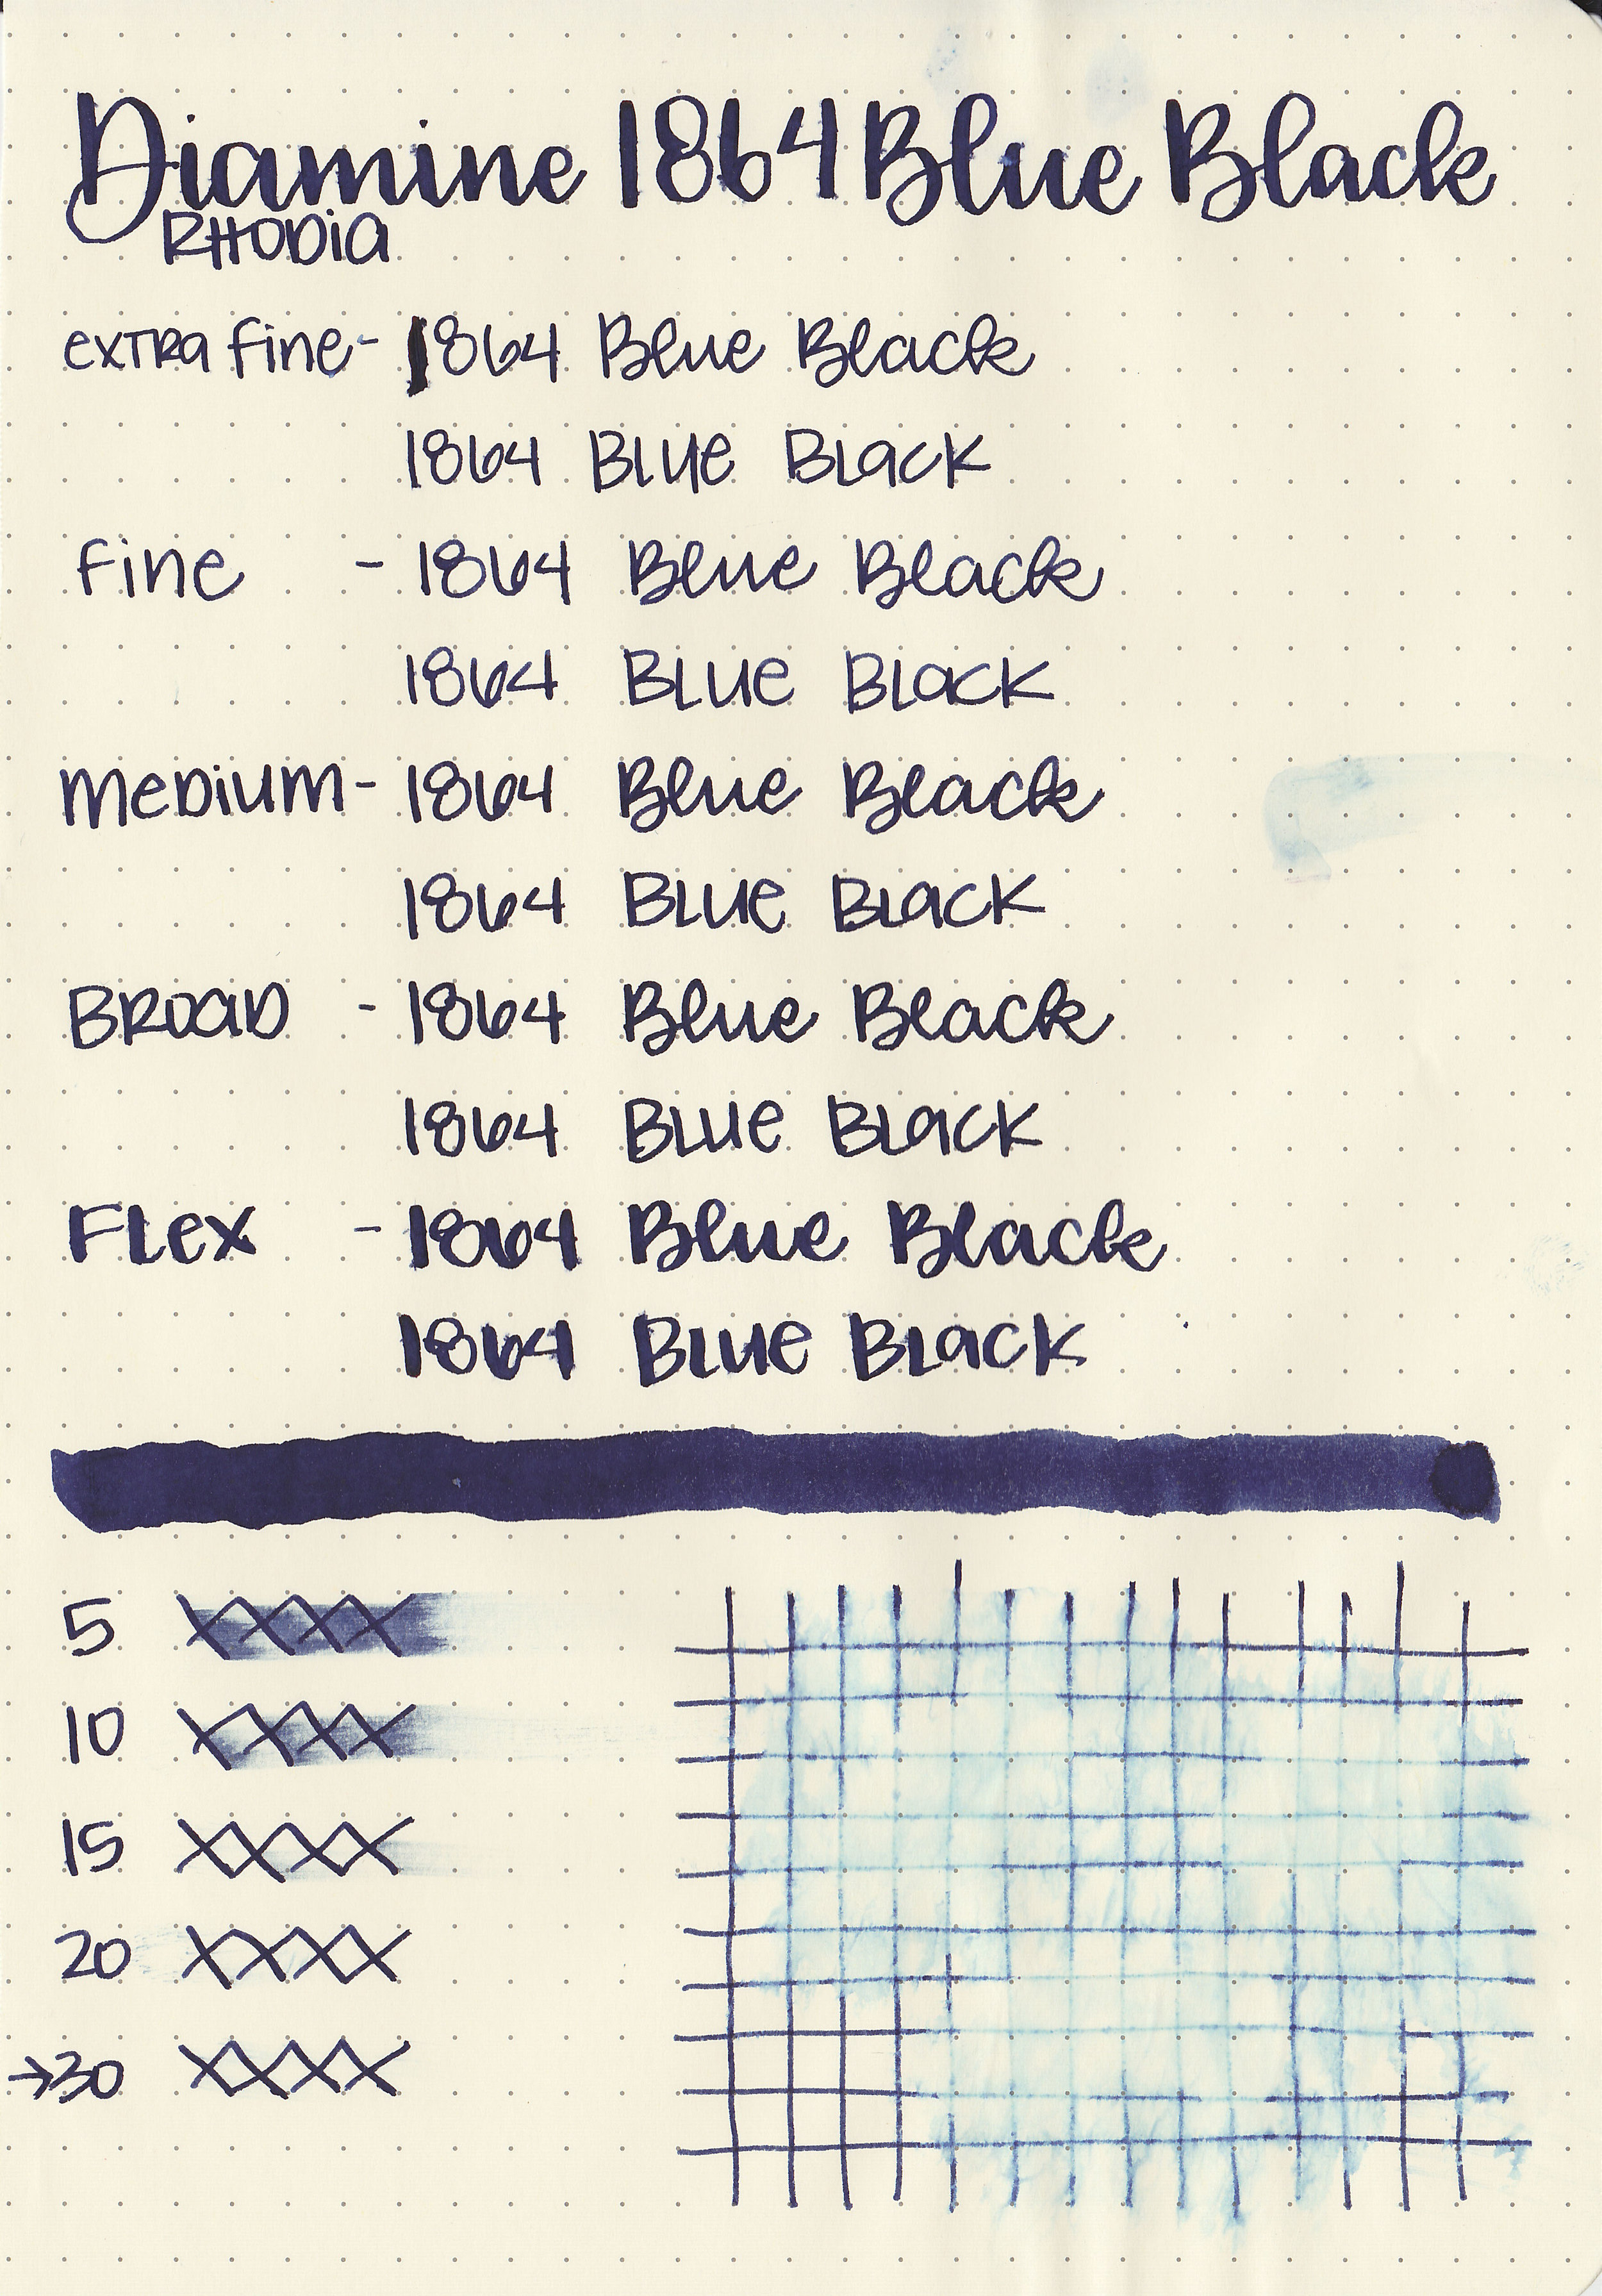 Diamine 1864 Blue Black
RHODIA
extra fine - 1864 Blue Black
1864 Blue Black
fine - 1864 Blue Black
1864 Blue Black
Medium - 1864 Blue Black
1864 Blue Black
Broad - 1864 Blue Black
1864 Blue Black
Flex - 1864 Blue Black
1864 Blue Black
5 XXXX
10 XXXX
15 XXXX
20 XXXX
→30 XXXX